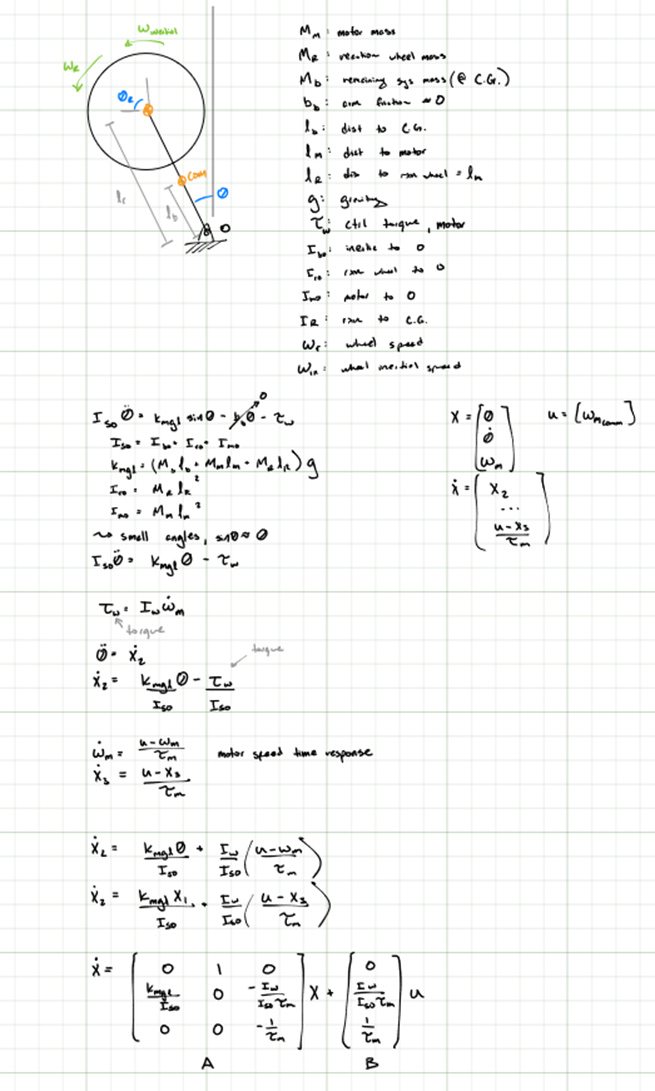 ω_inertial
ω_R
θ_R
COM
θ
l_r
l_b
O
M_m: motor mass
M_R: reaction wheel mass
M_b: remaining sys mass (@ C.G.)
b_b: arm friction ≈ 0
l_b: dist to C.G.
l_m: dist to motor
l_R: dis to rxn wheel = l_m
g: gravity
τ_w: ctrl torque, motor
I_bo: inertia to O
I_ro: rxn wheel to O
I_mo: motor to O
I_R: rxn to C.G.
ω_r: wheel speed
ω_in: wheel inertial speed
I_so θ̈ = k_mgl sinθ - b_b θ̇ → 0 - τ_w
I_so = I_bo + I_ro + I_mo
k_mgl = (M_b l_b + M_m l_m + M_R l_R) g
I_ro = M_R l_R²
I_mo = M_m l_m²
~> small angles, sinθ ≈ θ
I_so θ̈ = k_mgl θ - τ_w
x = [θ θ̇ ω_m] u = [ω_m comm]
ẋ = [x_2 ... (u - x_3)/τ_m]
τ_w = I_w ω̇_m
torque
θ̈ = ẋ_2
torque
ẋ_2 = k_mgl θ / I_so - τ_w / I_so
ω̇_m = (u - ω_m)/τ_m motor speed time response
ẋ_3 = (u - x_3)/τ_m
ẋ_2 = k_mgl θ / I_so + I_w / I_so ((u - ω_m)/τ_m)
ẋ_2 = k_mgl x_1 / I_so + I_w / I_so ((u - x_3)/τ_m)
ẋ = [0 1 0; k_mgl/I_so 0 -I_w/(I_so τ_m); 0 0 -1/τ_m] x + [0; I_w/(I_so τ_m); 1/τ_m] u
A B